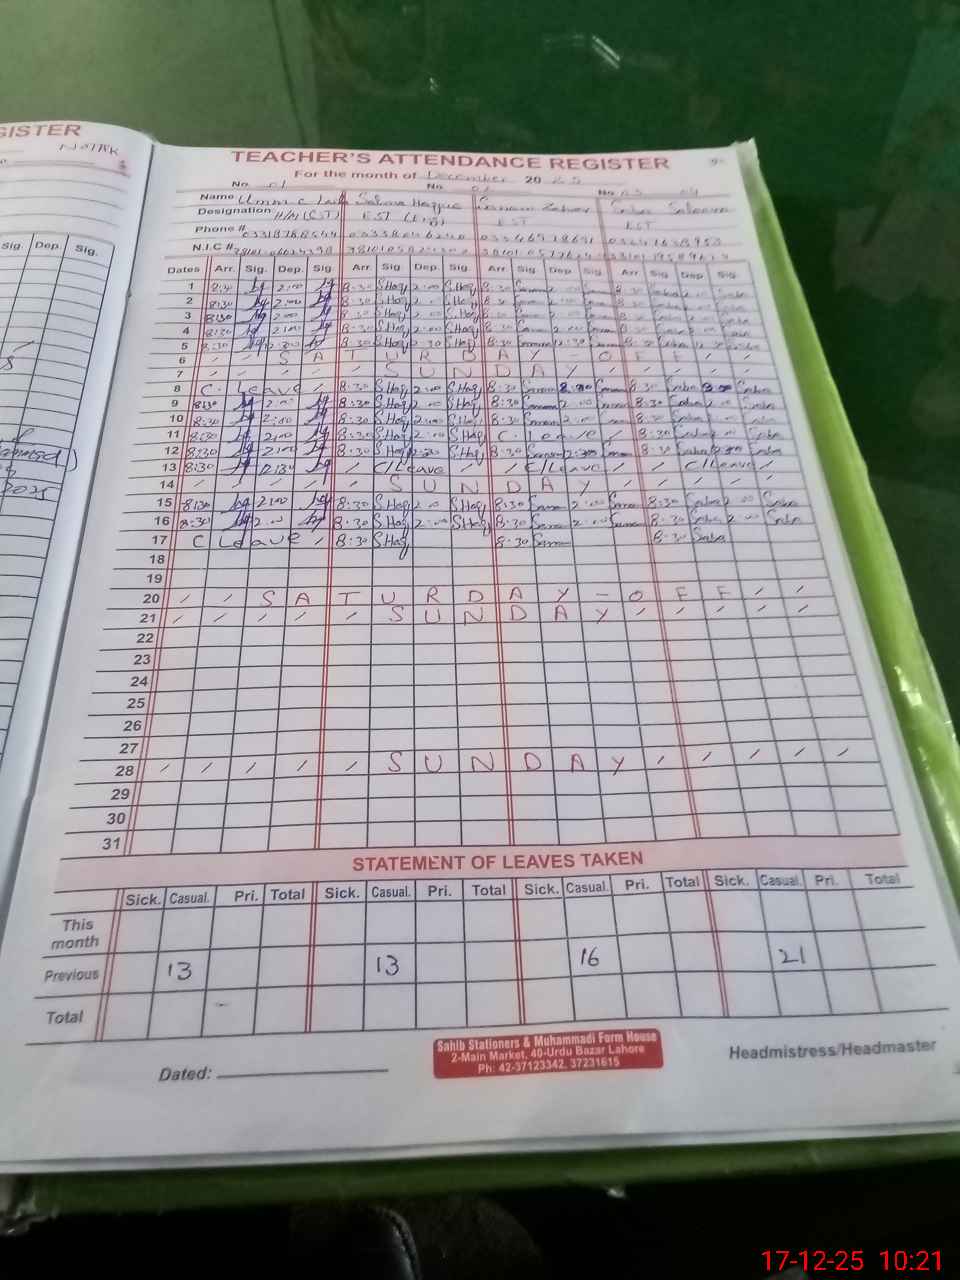 GISTER
TEACHER'S ATTENDANCE REGISTER
For the month of December 2025
No. 01 No. 02 No 03 04
Name Salma
Designation H/M (CST) EST EST EST
Phone #
N.I.C #
Sig. Dep. Sig.
Dates Arr. Sig. Dep. Sig. Arr. Sig. Dep. Sig. Arr. Sig. Dep. Sig. Arr. Sig. Dep. Sig.
1 8:30 2:00 8:30 S.Haq 2:00 S.Haq 8:30 2:00 8:30 Saba 2:00 Saba
2 8:30 2:00 8:30 S.Haq 2:00 S.Haq 8:30 2:00 8:30 Saba 2:00 Saba
3 8:30 2:00 8:30 S.Haq 2:00 S.Haq 8:30 2:00 8:30 Saba 2:00 Saba
4 8:30 2:00 8:30 S.Haq 2:00 S.Haq 8:30 2:00 8:30 Saba 2:00 Saba
5 8:30 12:30 8:30 S.Haq 12:30 S.Haq 8:30 12:30 8:30 Saba 12:30 Saba
6 / / S A T U R D A Y - O F F / /
7 / / / / / S U N D A Y / / / / /
8 C. Leave / 8:30 S.Haq 2:00 S.Haq 8:30 2:00 8:30 Saba 2:00 Saba
9 8:30 2:00 8:30 S.Haq 2:00 S.Haq 8:30 2:00 8:30 Saba 2:00 Saba
10 8:30 2:00 8:30 S.Haq 2:00 S.Haq 8:30 2:00 8:30 Saba 2:00 Saba
11 8:30 2:00 8:30 S.Haq 2:00 S.Haq C. Leave / 8:30 Saba 2:00 Saba
12 8:30 2:00 8:30 S.Haq S.Haq 8:30 8:30 Saba Saba
13 8:30 12:30 / C/Leave / / C/Leave / / C/Leave /
14 / / / / / S U N D A Y / / / / /
15 8:30 2:00 8:30 S.Haq 2:00 S.Haq 8:30 2:00 8:30 Saba 2:00 Saba
16 8:30 2:00 8:30 S.Haq 2:00 S.Haq 8:30 2:00 8:30 Saba 2:00 Saba
17 C Leave / 8:30 S.Haq 8:30 8:30 Saba
18
19
20 / / S A T U R D A Y - O F F / /
21 / / / / / S U N D A Y / / / / /
22
23
24
25
26
27
28 / / / / / S U N D A Y / / / / /
29
30
31
STATEMENT OF LEAVES TAKEN
Sick. Casual. Pri. Total Sick. Casual. Pri. Total Sick. Casual. Pri. Total Sick. Casual. Pri. Total
This month
Previous 13 13 16 21
Total
Sahib Stationers & Muhammadi Form House
2-Main Market, 40-Urdu Bazar Lahore
Ph: 42-37123342, 37231615
Dated: Headmistress/Headmaster
17-12-25 10:21